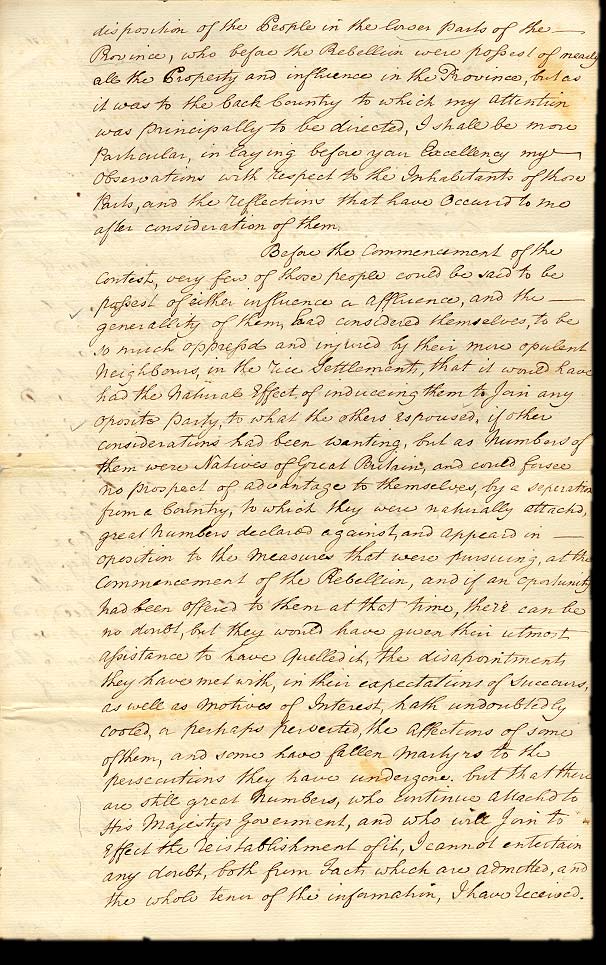 disposition of the People in the lower Parts of the
Province, who before the Rebellion were possest of nearly
all the Property and influence in the Province, but as
it was to the back Country to which my attention
was principally to be directed, I shall be more
Particular, in laying before your Excellency my
Observations with respect to the Inhabitants of those
Parts, and the reflections that have Occured to me
after consideration of them.
Before the Commencement of the
Contest, very few of those people could be said to be
possest of either influence or affluence, and the
generallity of them, had considered themselves, to be
so much oppressd and injured by their more opulent
Neighbours, in the rice Settlements, that it would have
had the Natural Effect of induceing them to Join any
oposite party, to what the others Espoused, if other
considerations had been wanting, but as Numbers of
them were Natives of Great Britain, and could forsee
no prospect of advantage to themselves, by a seperation
from a Country, to which they were naturally attachd,
great Numbers declared against, and appeard in
oposition to the Measures that were pursuing, at the
Commencement of the Rebellion, and if an oportunity
had been offered to them at that time, there can be
no doubt, but they would have given their utmost
assistance to have Quelled it, the disapointments
they have met with, in their expectations of Succours,
as well as motives of Interest, hath undoubtedly
cooled, or perhaps perverted, the affections of some
of them, and some have fallen Martyrs to the
persecutions they have undergone. but that there
are still great Numbers, who continue attachd to
His Majestys Goverment, and who will Join to
Effect the reistablishment of it, I cannot entertain
any doubt, both from facts which are admitted, and
the whole tenor of the information, I have received.